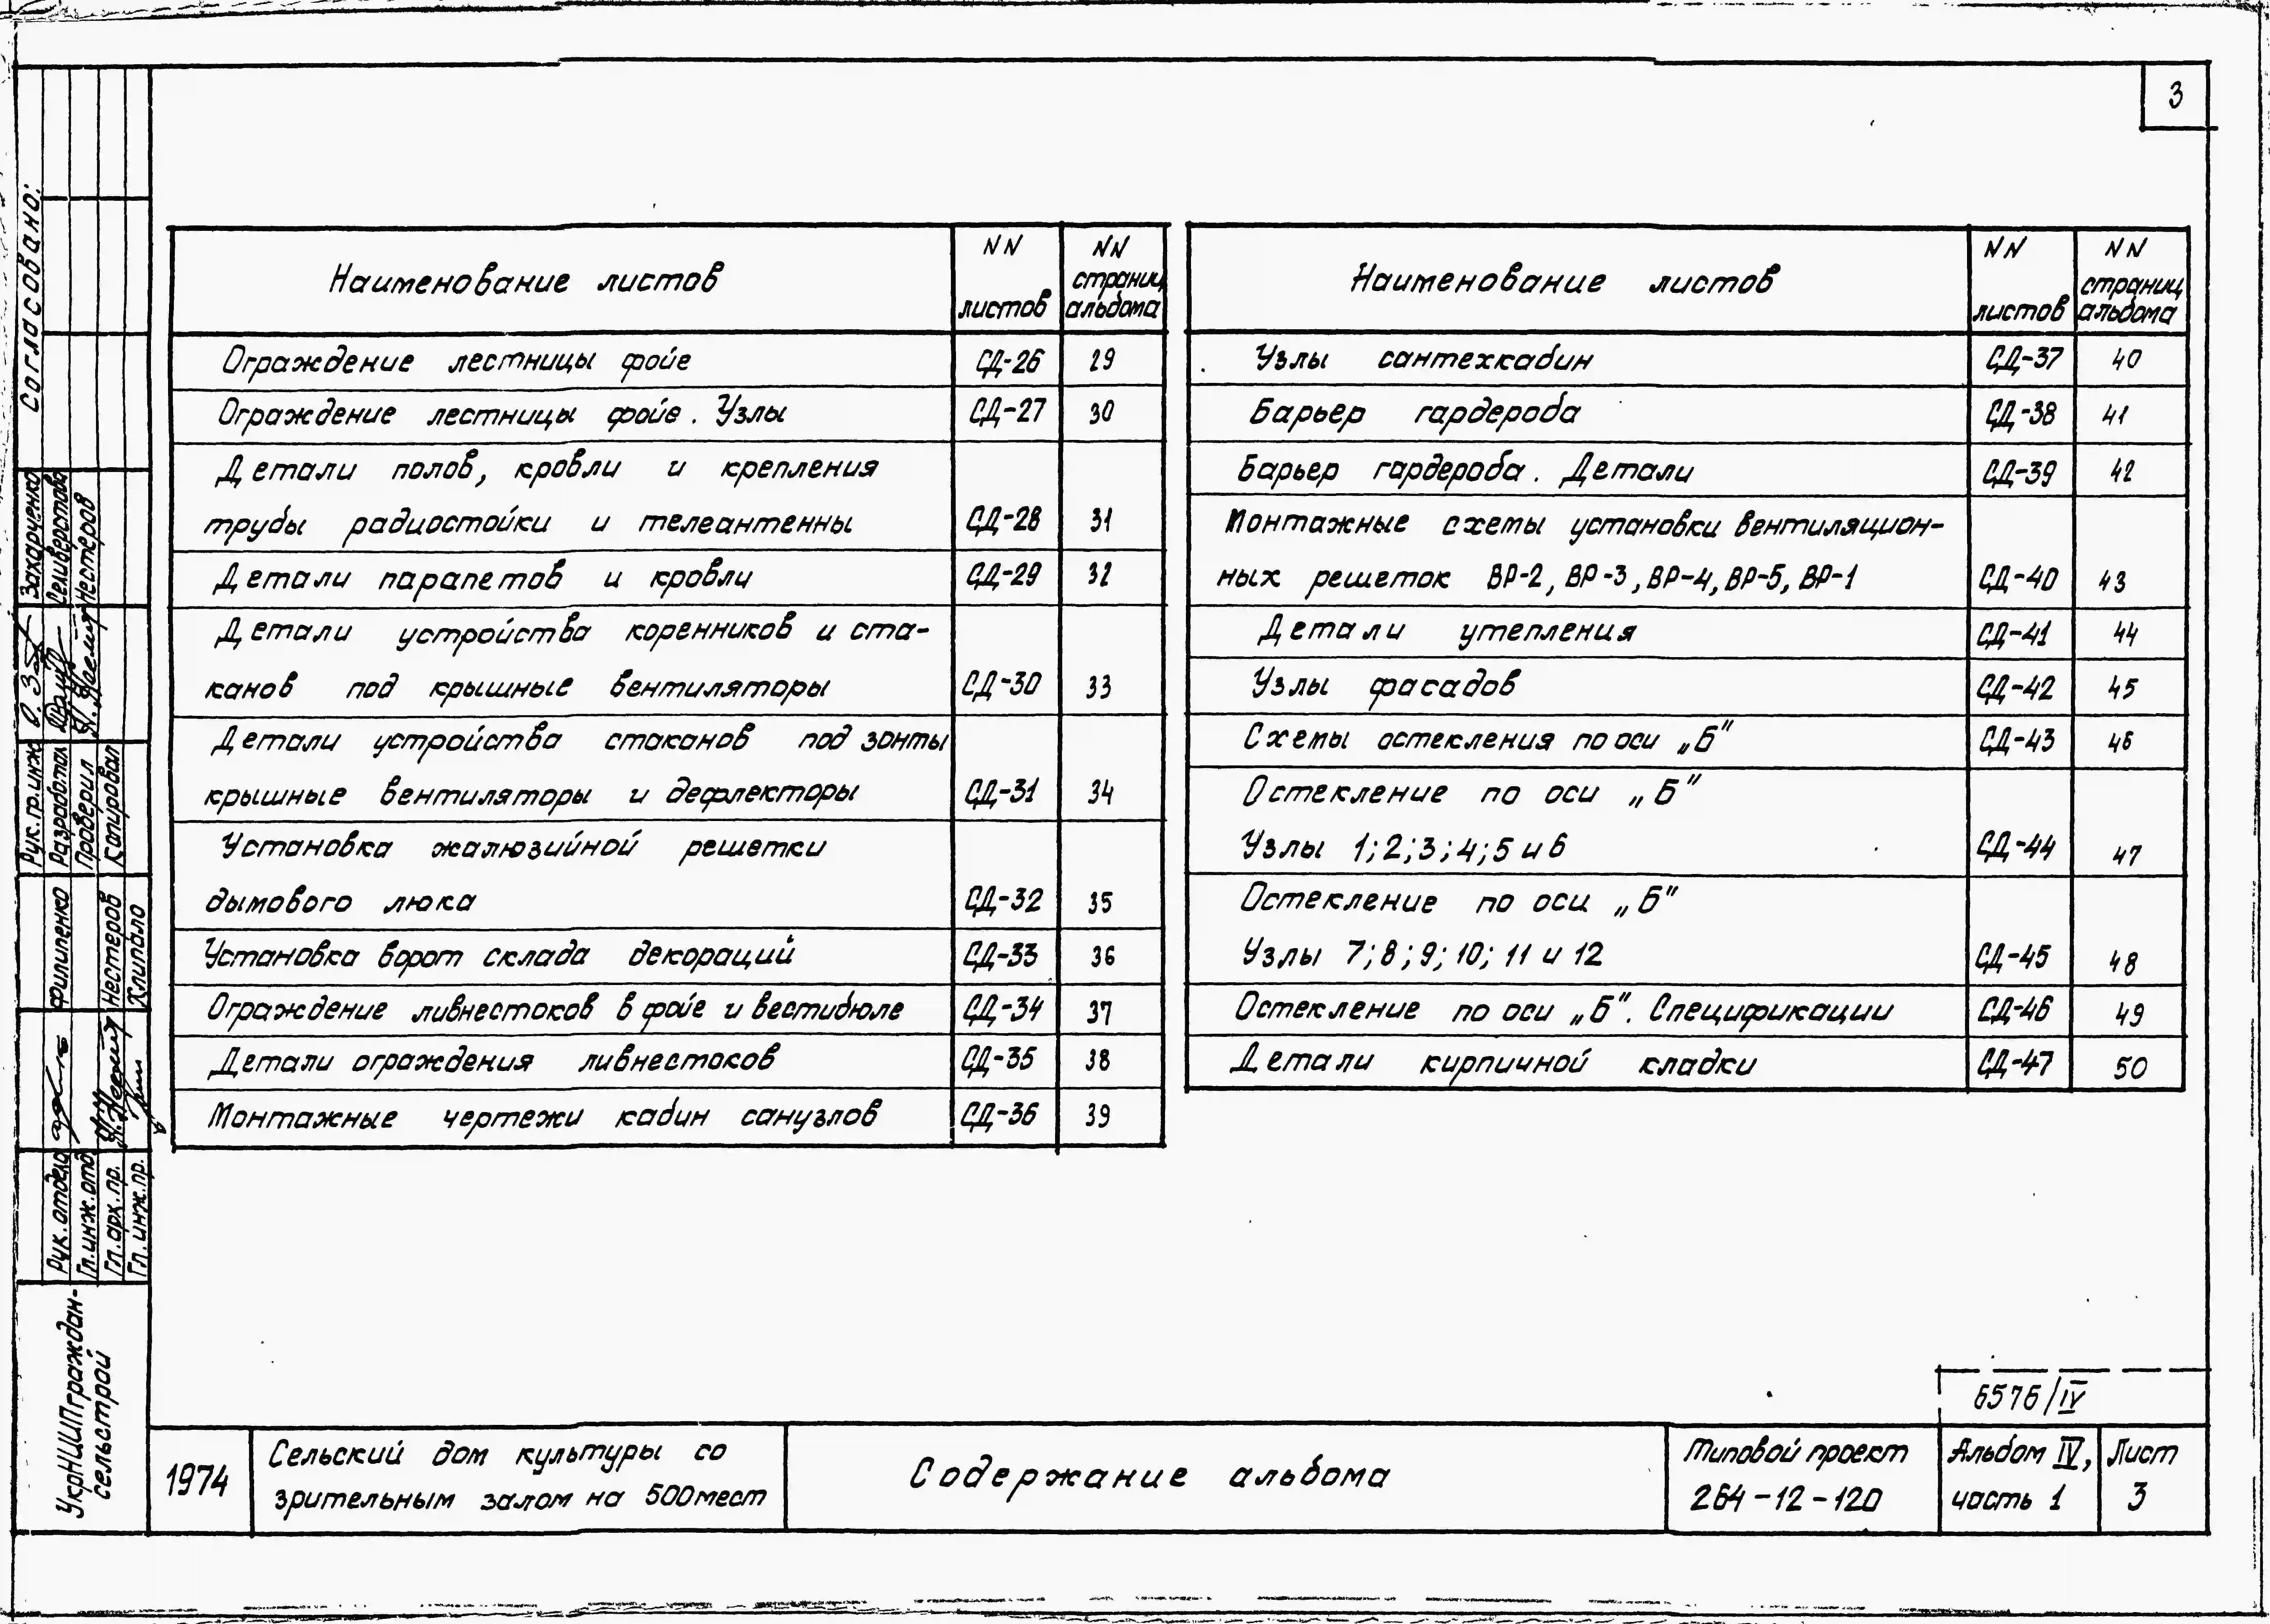 3
Наименование листов
NN листов
NN страниц альбома
Ограждение лестницы фойе СД-26 29
Ограждение лестницы фойе. Узлы СД-27 30
Детали полов, кровли и крепления
трубы радиостойки и телеантенны СД-28 31
Детали парапетов и кровли СД-29 32
Детали устройства коренников и ста-
канов под крышные вентиляторы СД-30 33
Детали устройства стаканов под зонты
крышные вентиляторы и дефлекторы СД-31 34
Установка жалюзийной решетки
дымового люка СД-32 35
Установка ворот склада декораций СД-33 36
Ограждение ливнестоков в фойе и вестибюле СД-34 37
Детали ограждения ливнестоков СД-35 38
Монтажные чертежи кабин санузлов СД-36 39
Наименование листов
NN листов
NN страниц альбома
Узлы сантехкабин СД-37 40
Барьер гардероба СД-38 41
Барьер гардероба. Детали СД-39 42
Монтажные схемы установки вентиляцион-
ных решеток ВР-2, ВР-3, ВР-4, ВР-5, ВР-1 СД-40 43
Детали утепления СД-41 44
Узлы фасадов СД-42 45
Схемы остекления по оси „Б" СД-43 46
Остекление по оси „Б"
Узлы 1; 2; 3; 4; 5 и 6 СД-44 47
Остекление по оси „Б"
Узлы 7; 8; 9; 10; 11 и 12 СД-45 48
Остекление по оси „Б". Спецификации СД-46 49
Детали кирпичной кладки СД-47 50
Согласовано:
Рук.гр.инж Захарченко
Разработал Селиверстова
Проверил Нестеров
Копировал
Рук.отдела Филипенко
Гл.инж.отд
Гл.арх.пр. Нестеров
Гл.инж.пр. Клипало
УкрНИИПграждан-
сельстрой
6576/IV
1974
Сельский дом культуры со
зрительным залом на 500 мест
Содержание альбома
Типовой проект
264-12-120
Альбом IV,
часть 1
Лист
3